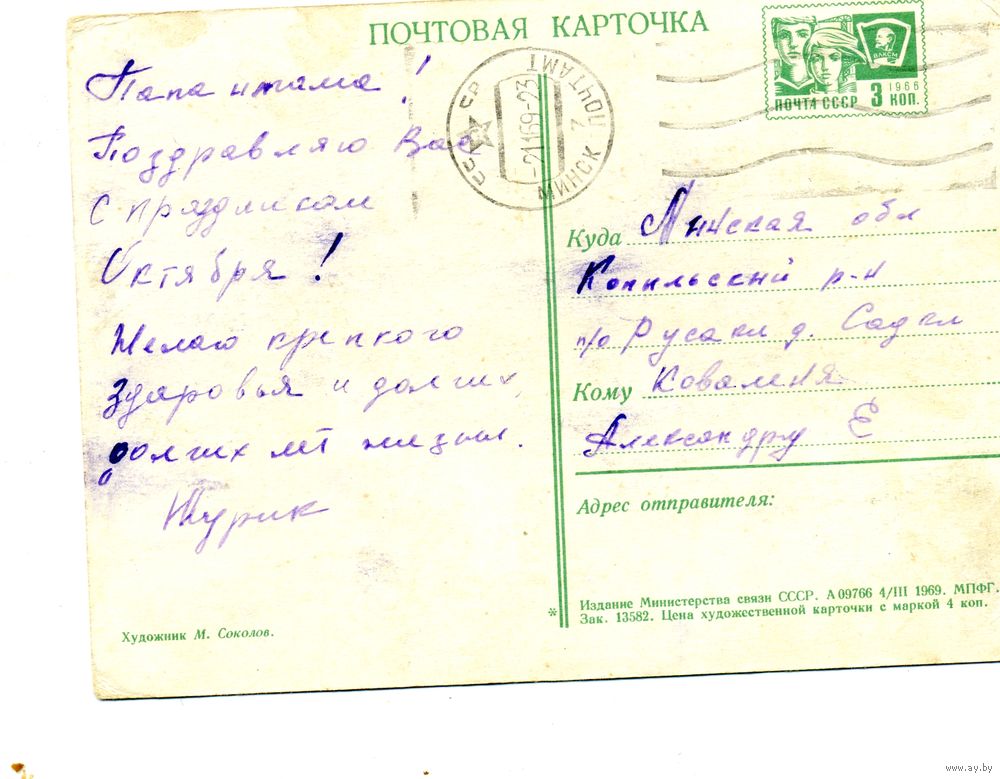 ПОЧТОВАЯ КАРТОЧКА
ВЛКСМ
1966
ПОЧТА СССР 3 КОП.
МИНСК 7 ПОЧТАМТ
-21169-23
Папа и мама!
Поздравляю Вас
с праздником
Октября!
Желаю крепкого
здоровья и долгих,
долгих лет жизни.
Куда Минская обл
Копыльский р-н
п/о Русаки д. Садки
Кому Коваленя
Александру Е
Адрес отправителя:
Издание Министерства связи СССР. А 09766 4/III 1969. МПФГ.
Зак. 13582. Цена художественной карточки с маркой 4 коп.
Художник М. Соколов.
www.ay.by